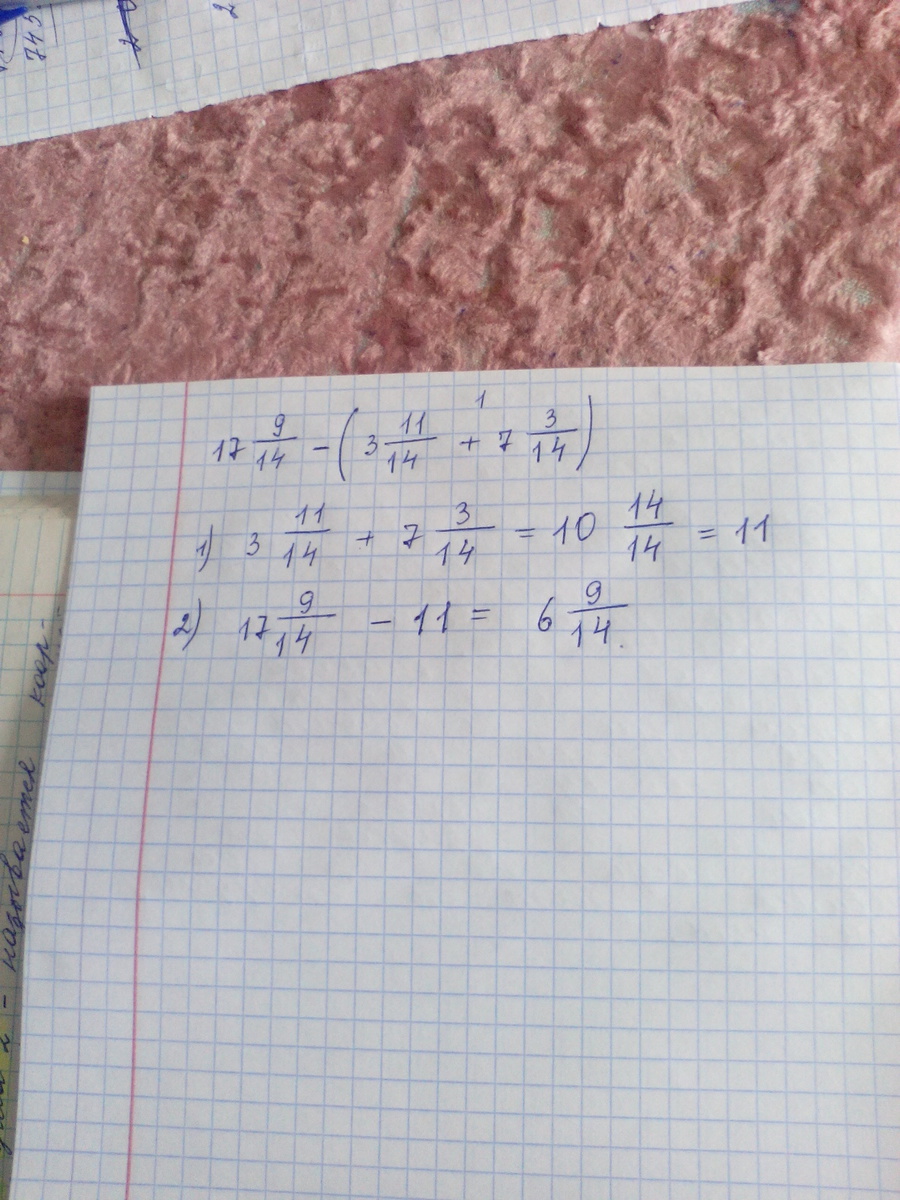 745
2
1
17 9/14 - (3 11/14 + 7 3/14)
1) 3 11/14 + 7 3/14 = 10 14/14 = 11
2) 17 9/14 - 11 = 6 9/14.
называется коор-